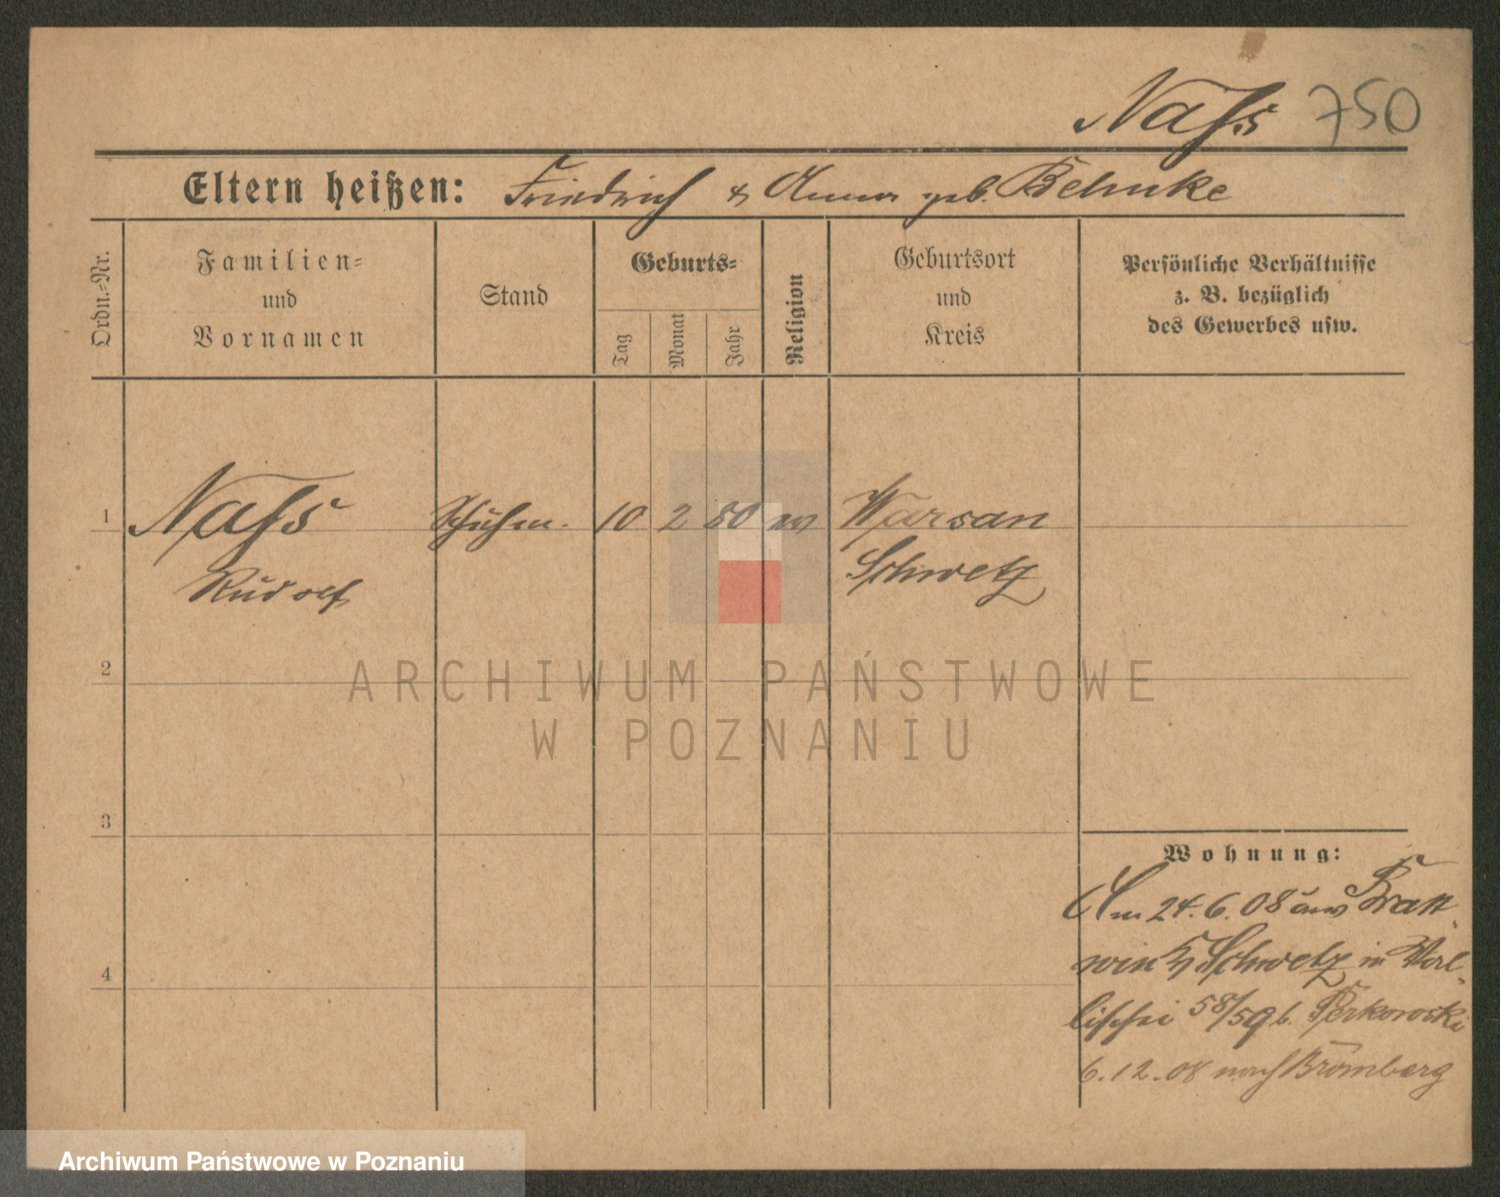 Nass 750
Eltern heißen: Friedrich & Anna geb. Behnke
Ordn.-Nr.
Familien-
und
Vornamen
Stand
Geburts-
Tag
Monat
Jahr
Religion
Geburtsort
und
Kreis
Persönliche Verhältnisse
z. B. bezüglich
des Gewerbes usw.
1 Nass Schuhm. 10 2 80 ev Warsan
Rudolf Schwetz
2
ARCHIWUM PAŃSTWOWE
W POZNANIU
3
Wohnung:
Am 24.6.08 aus Bratt
win Schwetz in
58/59 b. Perkowski
4
6.12.08 nach Bromberg
Archiwum Państwowe w Poznaniu